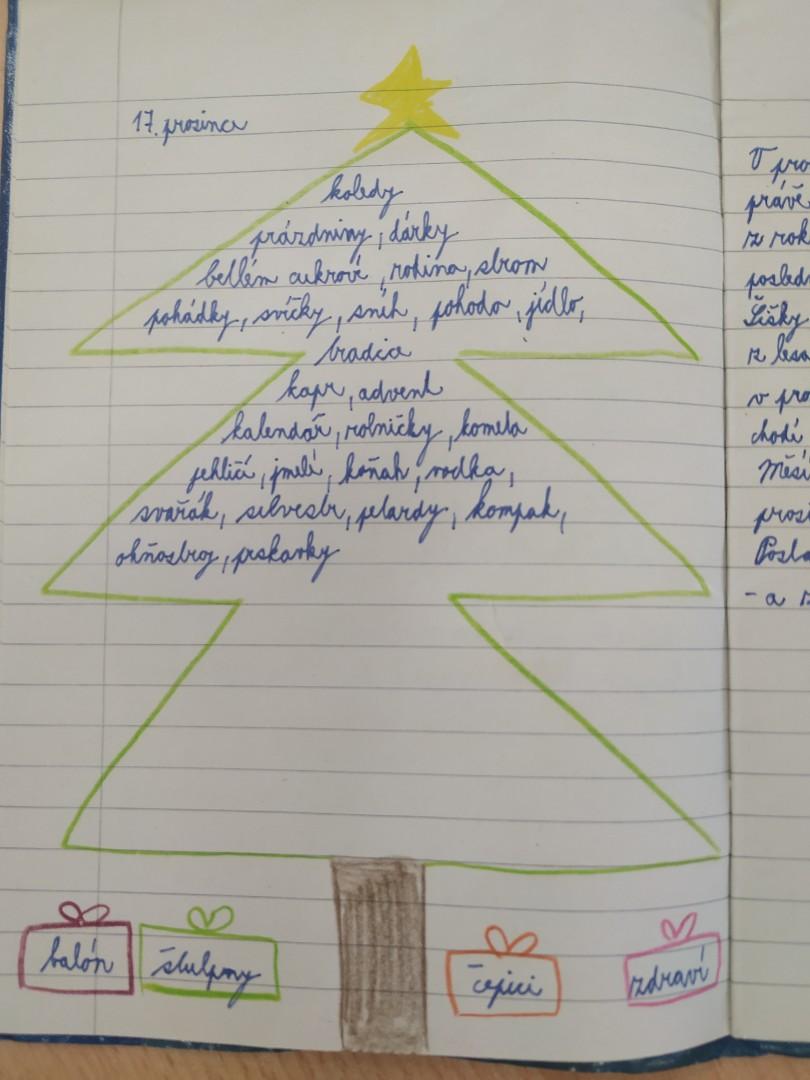 17. prosince
koledy
prázdniny, dárky
betlém cukroví, rodina, strom
pohádky, svíčky, sníh, pohoda, jídlo,
tradice
kapr, advent
kalendář, rolničky, kometa
jehličí, jmelí, koňak, vodka,
svařák, silvestr, petardy, kompak,
ohňostroj, prskavky
balón
štulpny
čepici
zdraví
V pro
právě
z rok
posled
Šišky
z lesa
v pro
chodí
Měsí
prosi
Posla
- a